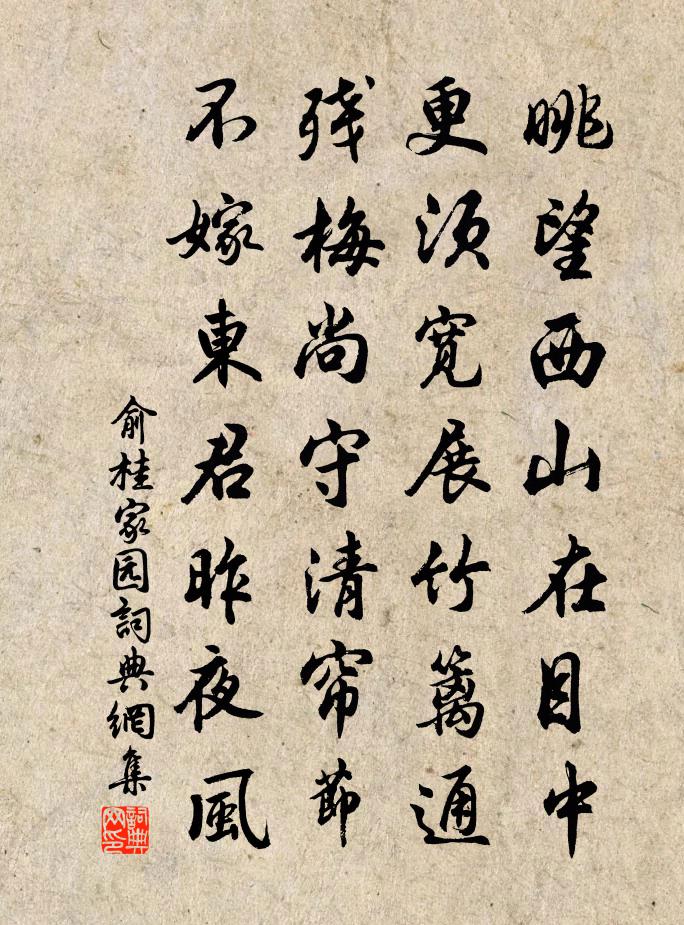 眺望西山在目中
更须宽展竹篱通
残梅尚守清帘節
不嫁東君昨夜風
俞桂家园詞典網集
詞典网印